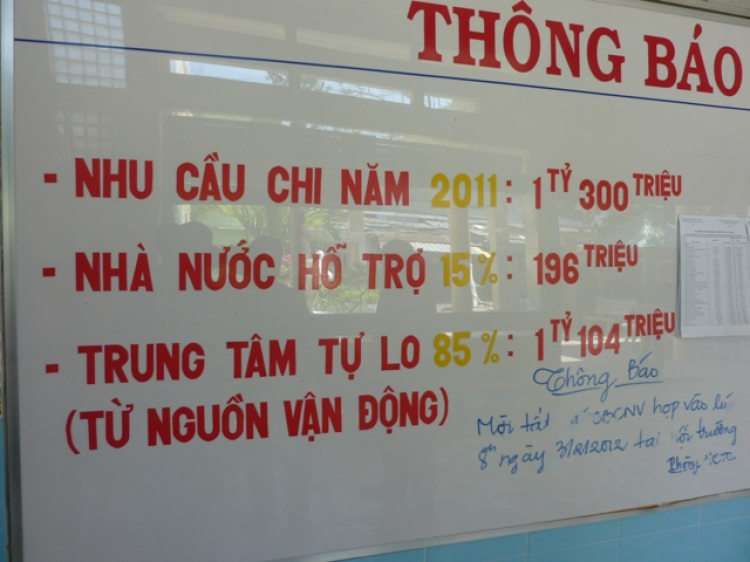 THÔNG BÁO
- NHU CẦU CHI NĂM 2011: 1 TỶ 300 TRIỆU
- NHÀ NƯỚC HỖ TRỢ 15%: 196 TRIỆU
- TRUNG TÂM TỰ LO 85%: 1 TỶ 104 TRIỆU
(TỪ NGUỒN VẬN ĐỘNG)
Thông Báo
Mời tất CBCNV họp vào lú
8h ngày 3/2/2012 tại trường
Phòng